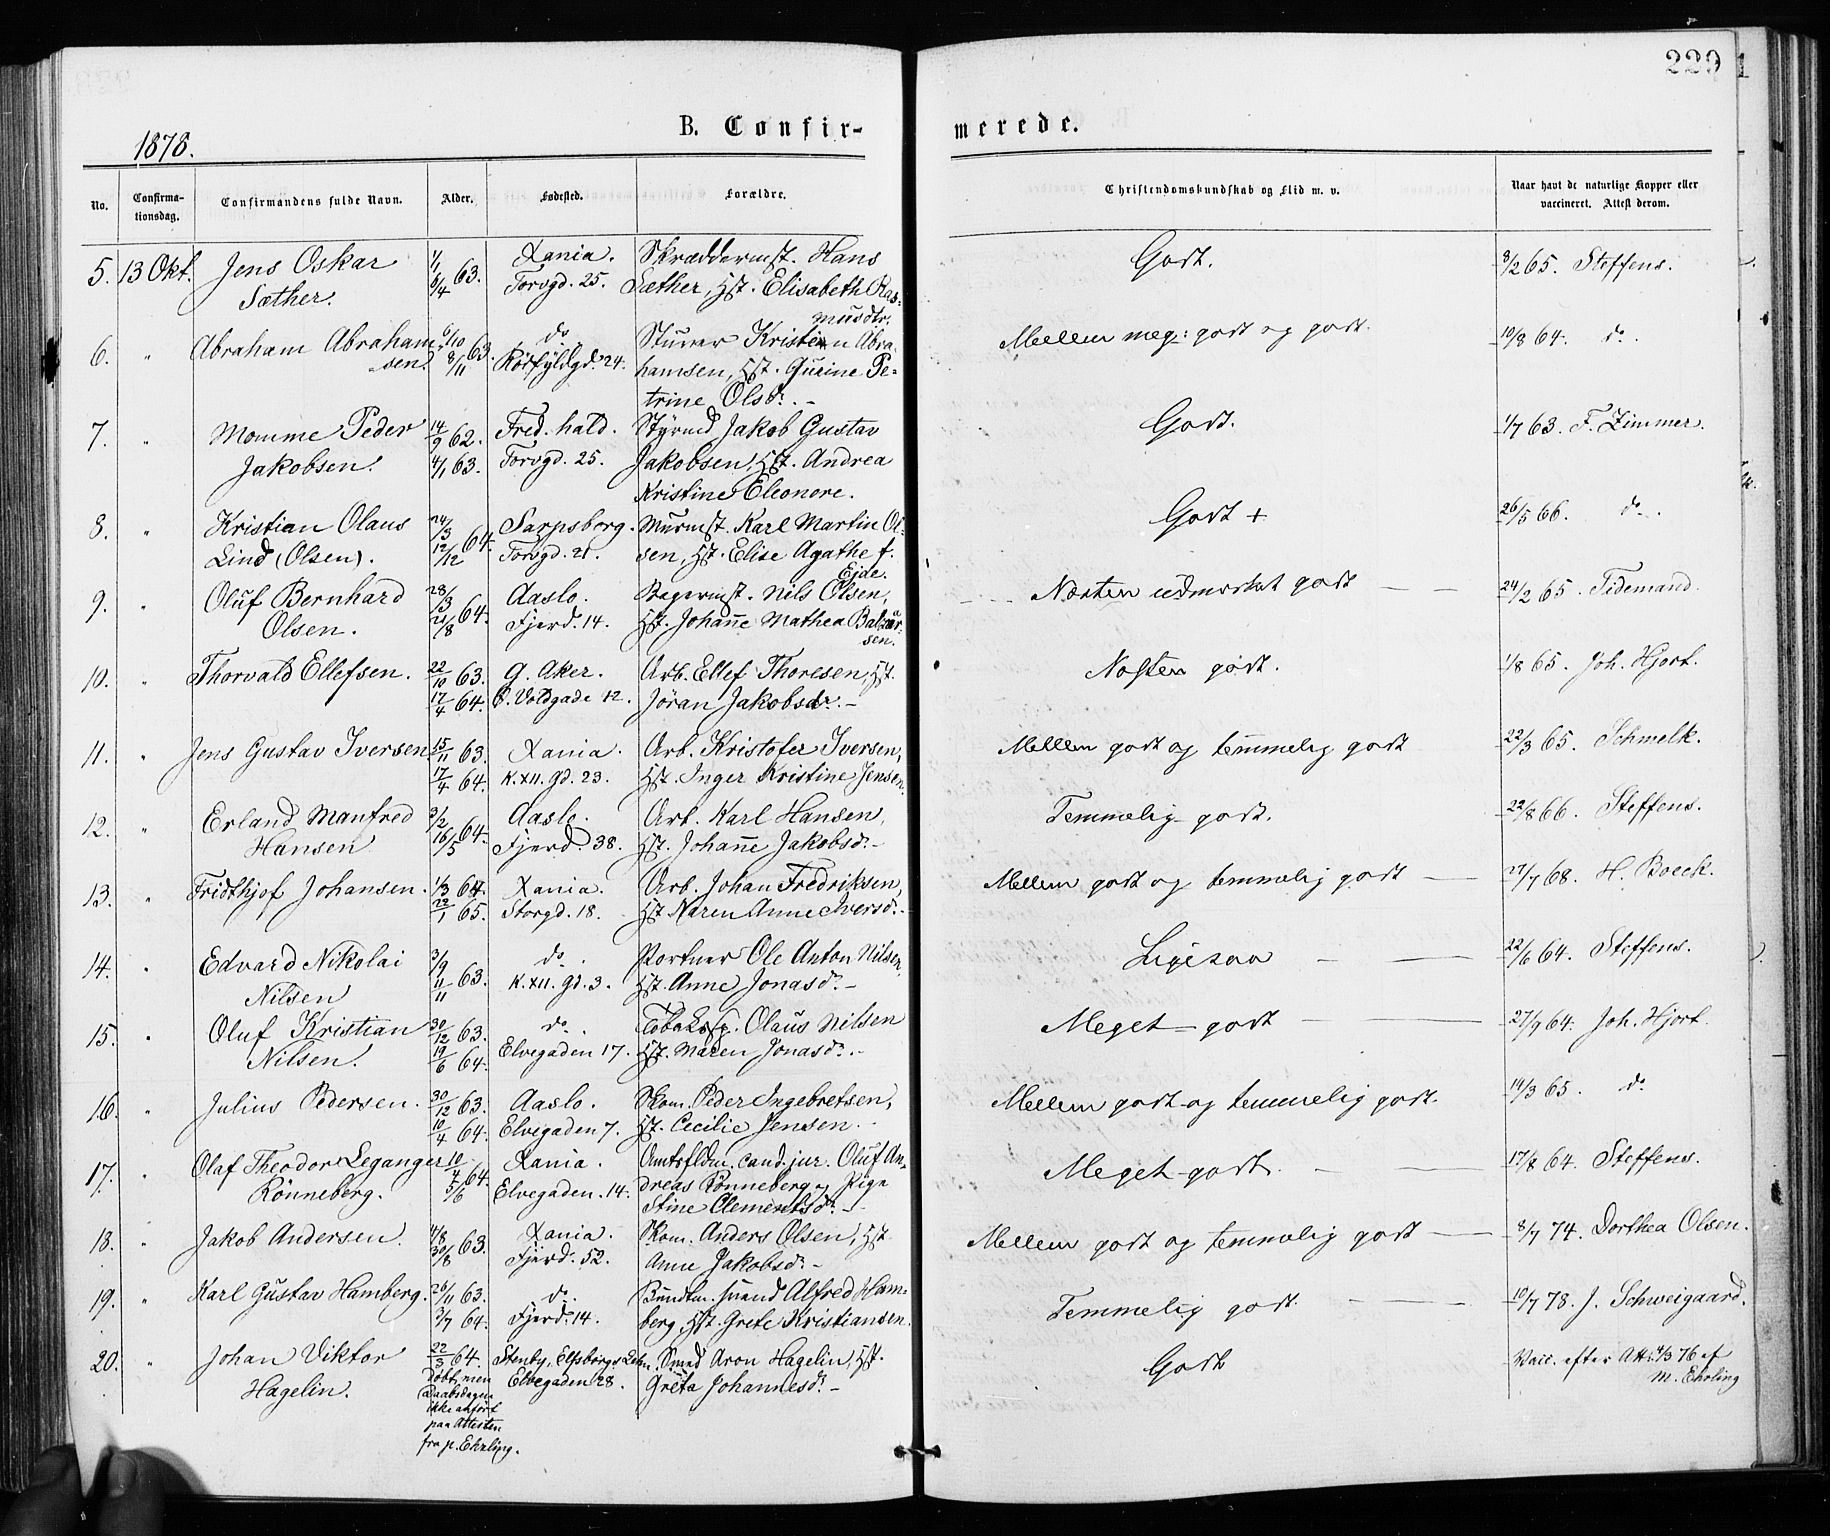 229
1878.
B. Confir-
merede.
No.
Confirma-
tionsdag.
Confirmandens fulde Navn.
Alder.
Fødested.
Forældre.
Christendomskundskab og Flid m. v.
Naar havt de naturlige Kopper eller
vaccineret. Attest derom.
5. 13 Okt. Jens Oskar 1/1 63. Xania. Skræddermst. Hans Godt. 8/2 65. Steffens.
Sæther. 6/4 Torvgd. 25. Sæther, Hst. Elisabeth Ras-
musdtr.
6. " Abraham Abraham- 6/10 63. do Stuver Kristen Abra- Mellem meg: godt og godt. 10/8 64. do.
sen. 8/11 Rødfyldgd. 24. hamsen, Hst. Gurine Pe-
trine Olsdr. -
7. " Momme Peder 14/9 62. Fred.hald. Styrmd Jakob Gustav Godt. 1/7 63. F. Zimmer.
Jakobsen. 4/1 63. Torvgd. 25. Jakobsen, Hst. Andrea
Kristine Eleonore.
8. " Kristian Olaus 24/3 64. Sarpsborg. Murmst. Karl Martin Ol- Godt + 26/5 66. do.
Lind (Olsen). 12/12 Torvgd. 21. sen, Hst. Elise Agathe f.
Ejde.
9. " Oluf Bernhard 28/3 64. Aaslo. Bagermst. Nils Olsen, Næsten udmærket godt 24/2 65. Tidemand.
Olsen. 21/8 Fjerd. 14. Hst. Johanne Mathea Balzar-
sen.
10. " Thorvald Ellefsen. 22/10 63. G. Aker. Arb. Ellef Thoresen, Hst. Næsten godt. 1/8 65. Joh. Hjort.
17/4 64. Ø. Voldgade 12. Jöran Jakobsdr. -
11. " Jens Gustav Iversen 15/11 63. Xania. Arb. Kristofer Iversen, Mellem godt og temmelig godt 22/3 65. Schmelk.
17/4 64. K. XII. Gd. 23. Hst. Inger Kristine Jensen.
12. " Erland Manfred 3/2 64. Aaslo. Arb. Karl Hansen, Temmelig godt. 22/8 66. Steffens.
Hansen 16/5 Fjerd. 38. Hst. Johanne Jakobsdr. -
13. " Fridthjof Johansen. 1/3 64. Xania. Arb. Johan Fredriksen, Mellem godt og temmelig godt 27/7 68. H. Boeck.
22/1 65. Storgd. 18. Hst. Maren Anne Iversdr. -
14. " Edvard Nikolai 3/9 63. do. Portner Ole Anton Nilsen, Ligesaa 22/6 64. Steffens.
Nilsen 11/11 K. XII. Gd. 3. Hst. Anne Jonasdr. -
15. " Oluf Kristian 30/12 63. do. Olaus Nilsen Meget godt 27/9 64. Joh. Hjort.
Nilsen. 19/6 64. Elvegaden 17. Hst. Maren Jonasdr. -
16. " Julius Pedersen. 30/12 63. Aaslo. Skom. Peder Ingebretsen, Mellem godt og temmelig godt. 14/3 65. do
10/4 64. Elvegaden 7. Hst. Cecilie Jensen. -
17. " Olaf Theodor Leganger 10/4 64. Xania. Amtsfldm. cand. jur. Oluf An- Meget godt. 17/8 64. Steffens.
Rönneberg. 5/6 Elvegaden. 14. dreas Rönneberg og Pige
Stine Clementsdr. -
18. " Jakob Andersen. 4/8 63. Xania. Skom. Anders Olsen, Hst. Mellem godt og temmelig godt 8/7 74. Dorthea Olsen.
30/8 Fjerd. 52. Anne Jakobsdr. -
19. " Karl Gustav Hamberg. 26/11 63. do. Bundtm. svend Alfred Ham- Temmelig godt. 10/7 78. J. Schweigaard.
3/7 64. Fjerd. 14. berg, Hst. Grete Kristiansen.
20. " Johan Viktor 22/3 64. Stenby, Elfsborgs Lehn. Smed Aron Hagelin, Hst. Godt Vacc. efter Att. 4/3 76 af
Hagelin. Döbt, men Elvegaden 28. Greta Johannesdr. - M. Ehrling
Daabsdagen
ikke anført
paa Attesten
fra p. Ehrling.